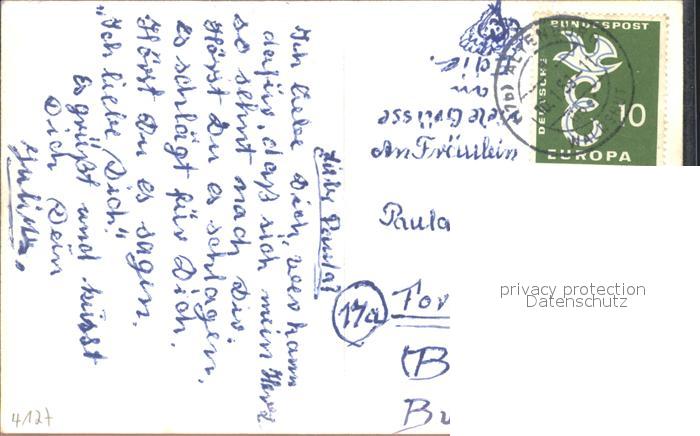 Liebe Paula!
Ich liebe Dich, wer kann
dafür, daß sich mein Herz
so sehnt nach Dir.
Hörst Du es schlagen,
es schlägt für Dich.
Hörst Du es sagen.
„Ich liebe Dich"
Es grüßt und küsst
Dich Dein
Viele Grüsse
an
die
An Fräulein
Paula
17a
(B
DEUTSCHE BUNDESPOST
10
EUROPA
privacy protection
Datenschutz
4/127